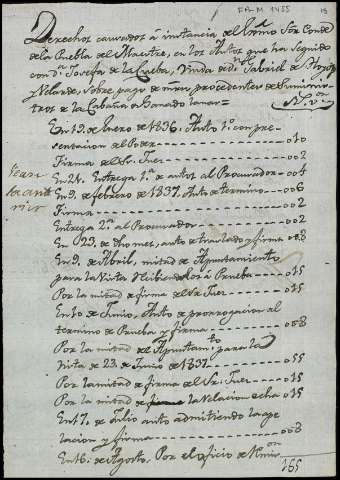 FR-M 1455
Derechos causados á instancia del Exmo Sor Conde
de la Puebla del Maestre, en los Autos que ha seguido
con Da Josefa de la Cueba, Viuda de Dn Gabriel de
Velarde, sobre pago de mrs, procedentes de suminis-
tros de la Cabaña o Ganado lanar=
Rs vn
En 19. de Enero de 1836. Auto 1o con pre-
sentacion de Poder 010
Firma del Sr. Juez 002
En 21. Entrega 1a de autos al Procurador 004
En 9. de febrero de 1837. Auto de termino 006
Firma 002
Entrega 2a al Procurador 002
En 23. de Dho mes, auto de traslado y firma 008
En 9. de Abril, mitad de Apuntamiento
para la Vista Recibiendolos á Prueba 015
Por la mitad de firma del Sr Juez 015
En 10 de Junio, Auto de prorrogacion al
termino de Prueba y firma 008
Por la mitad del Apuntamto para la
Vista de 23 de Junio de 1837 055
Por la mitad de firma del Sr. Juez 015
Por la mitad de la Relacion echa 015
En 17. de Julio auto admitiendo la ape
lacion y firma 008
En 16. de Agosto, Por el oficio de
165